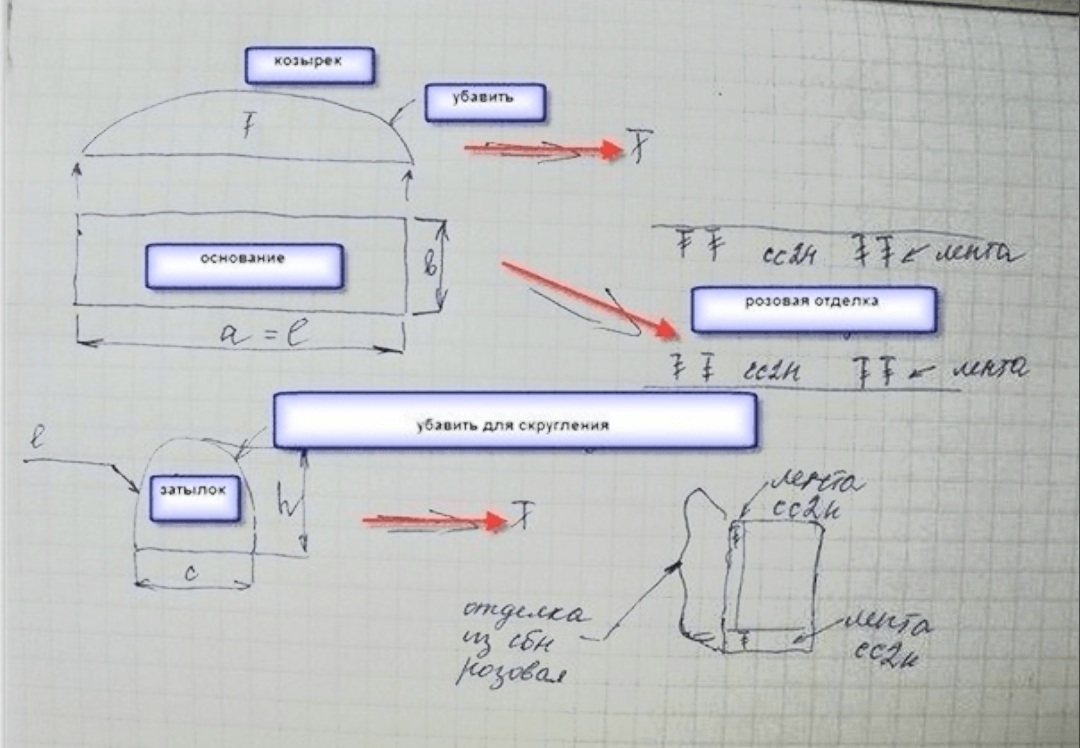 козырек
убавить
основание
в
a = l
сс2н лента
розовая отделка
сс2н лента
убавить для скругления
l
затылок
h
c
лента
сс2н
отделка
из сбн
розовая
лента
сс2н